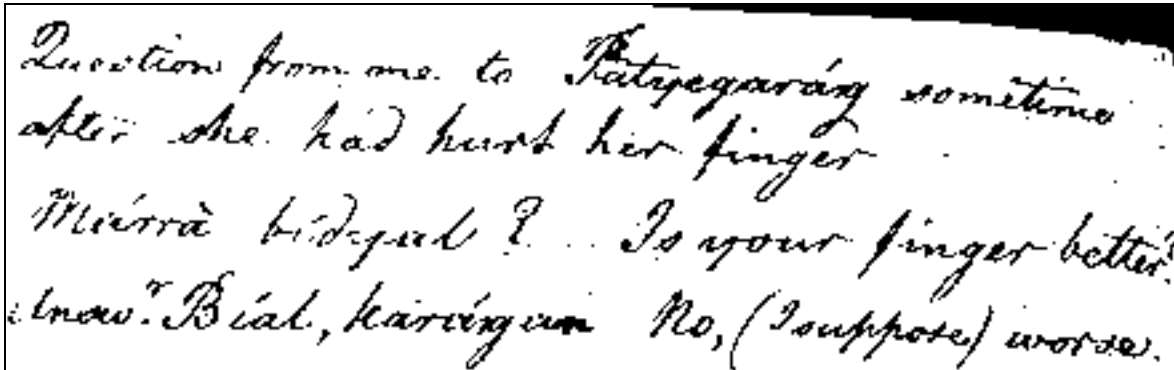 Question from me to Patyegaráng sometime
after she had hurt her finger
Miúrrà bídyul? Is your finger better?
Answr. Bíal, karángun No, (I suppose) worse.